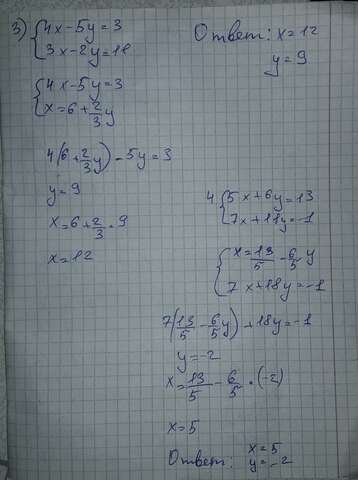 3) { 4x-5y=3
3x-2y=18
{ 4x-5y=3
x=6+2/3y
4(6+2/3y)-5y=3
y=9
x=6+2/3·9
x=12
Ответ: x=12
y=9
4 { 5x+6y=13
7x+18y=-1
{ x=13/5-6/5y
7x+18y=-1
7(13/5-6/5y)+18y=-1
y=-2
x=13/5-6/5·(-2)
x=5
Ответ: x=5
y=-2